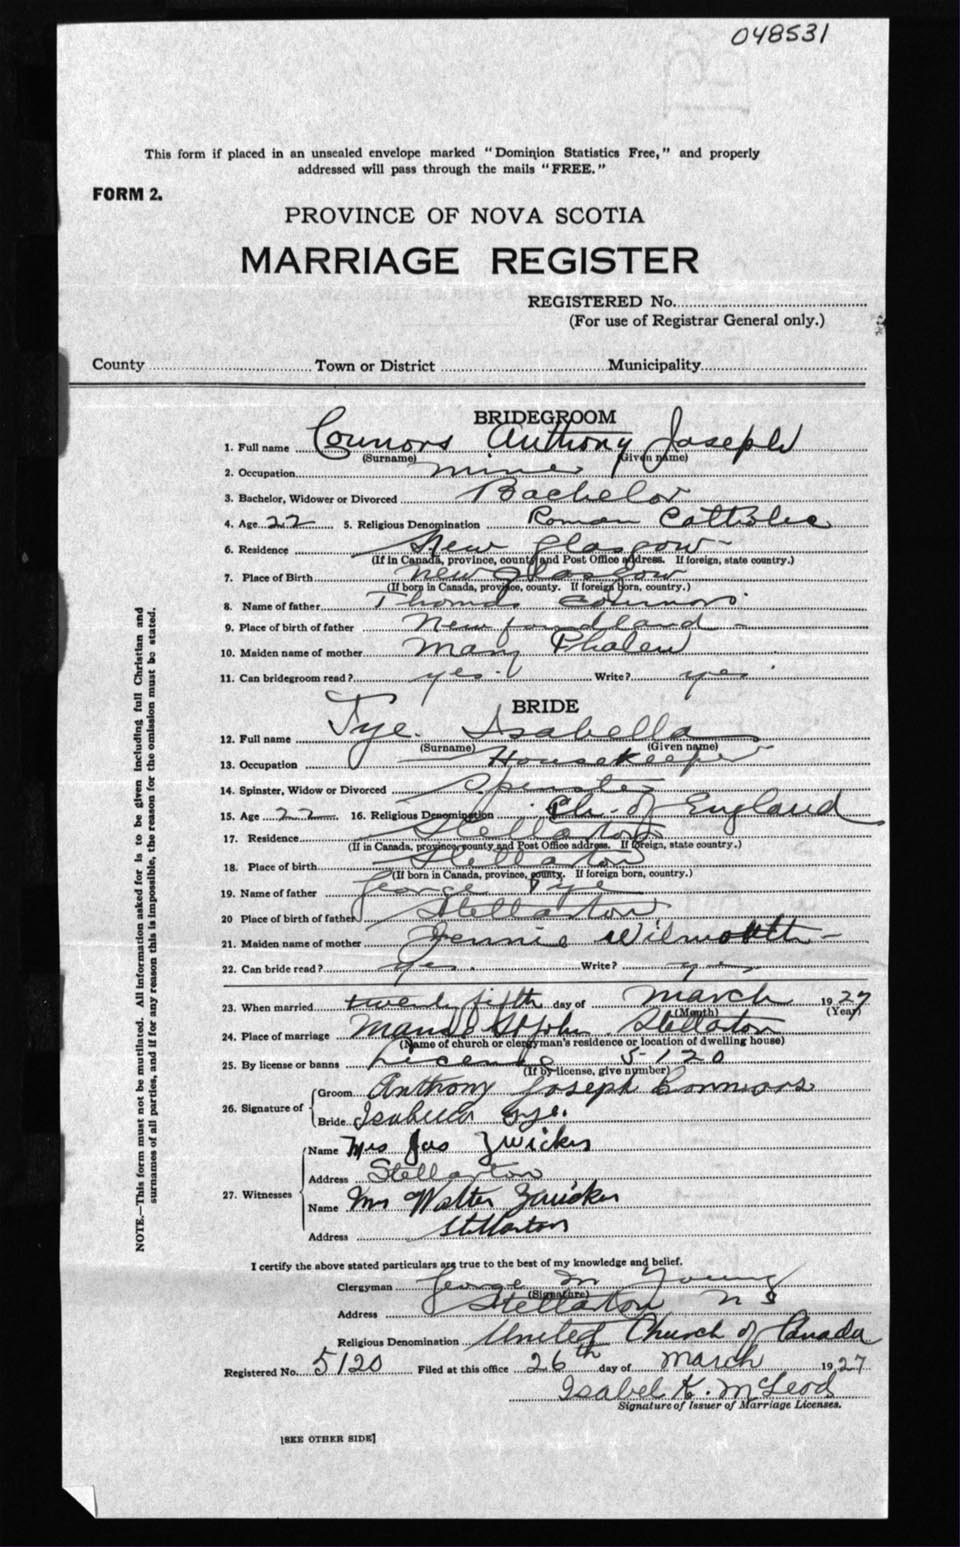 048531
This form if placed in an unsealed envelope marked "Dominion Statistics Free," and properly
addressed will pass through the mails "FREE."
FORM 2.
PROVINCE OF NOVA SCOTIA
MARRIAGE REGISTER
REGISTERED No.
(For use of Registrar General only.)
County Town or District Municipality
BRIDEGROOM
1. Full name Connors Anthony Joseph
(Surname) (Given name)
2. Occupation miner
3. Bachelor, Widower or Divorced Bachelor
4. Age 22 5. Religious Denomination Roman Catholic
6. Residence New Glasgow
(If in Canada, province, county and Post Office address. If foreign, state country.)
7. Place of Birth New Glasgow
(If born in Canada, province, county. If foreign born, country.)
8. Name of father Thomas Connors
9. Place of birth of father Newfoundland
10. Maiden name of mother Mary Phalen
11. Can bridegroom read? yes. Write? yes
BRIDE
12. Full name Tye. Isabella
(Surname) (Given name)
13. Occupation Housekeeper
14. Spinster, Widow or Divorced Spinster
15. Age 22 16. Religious Denomination Ch. of England
17. Residence Stellarton
(If in Canada, province, county and Post Office address. If foreign, state country.)
18. Place of birth Stellarton
(If born in Canada, province, county. If foreign born, country.)
19. Name of father George Tye
20 Place of birth of father Stellarton
21. Maiden name of mother Jennie Wilmoth
22. Can bride read? yes. Write? yes
23. When married twenty fifth day of March 1927
(Month) (Year)
24. Place of marriage Manse St John Stellarton
(Name of church or clergyman's residence or location of dwelling house)
25. By license or banns License 5-120
(If by license, give number)
26. Signature of
Groom Anthony Joseph Connors
Bride Isabella Tye.
27. Witnesses
Name Mrs Jas Zwicker
Address Stellarton
Name Mrs Walter Zwicker
Address Stellarton
I certify the above stated particulars are true to the best of my knowledge and belief.
Clergyman George M Young
(Signature)
Address Stellarton N S
Religious Denomination United Church of Canada
Registered No. 5120 Filed at this office 26th day of March 1927
Isabel K. McLeod
Signature of Issuer of Marriage Licenses.
[SEE OTHER SIDE]
NOTE.—This form must not be mutilated. All information asked for is to be given including full Christian and
surnames of all parties, and if for any reason this is impossible, the reason for the omission must be stated.